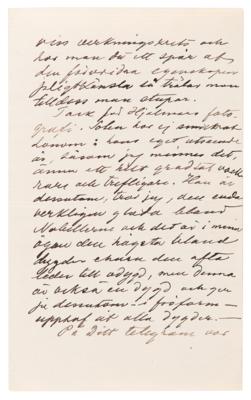 viss verkningskrets och
har man då ett spår af
den förbannade egenskapen
pligtkänsla så trälar man
tilldess man stupar.
Tack för Hjalmars foto-
grafi. Solen har ej smickrat
honom; hans eget utseende
är, såsom jag minnes det,
ännu ett helt gradtal vack-
rare och trefligare. Han är
dessutom, tror jag, den enda
verkligen glada bland
Nobellerna och det är i mina
ögon den högsta bland
dygder churu den ofta
leder till odygd, men denna
är också en dygd och ger
ju dessutom i fösform
upphof åt alla dygder.—
På Ditt telegram var